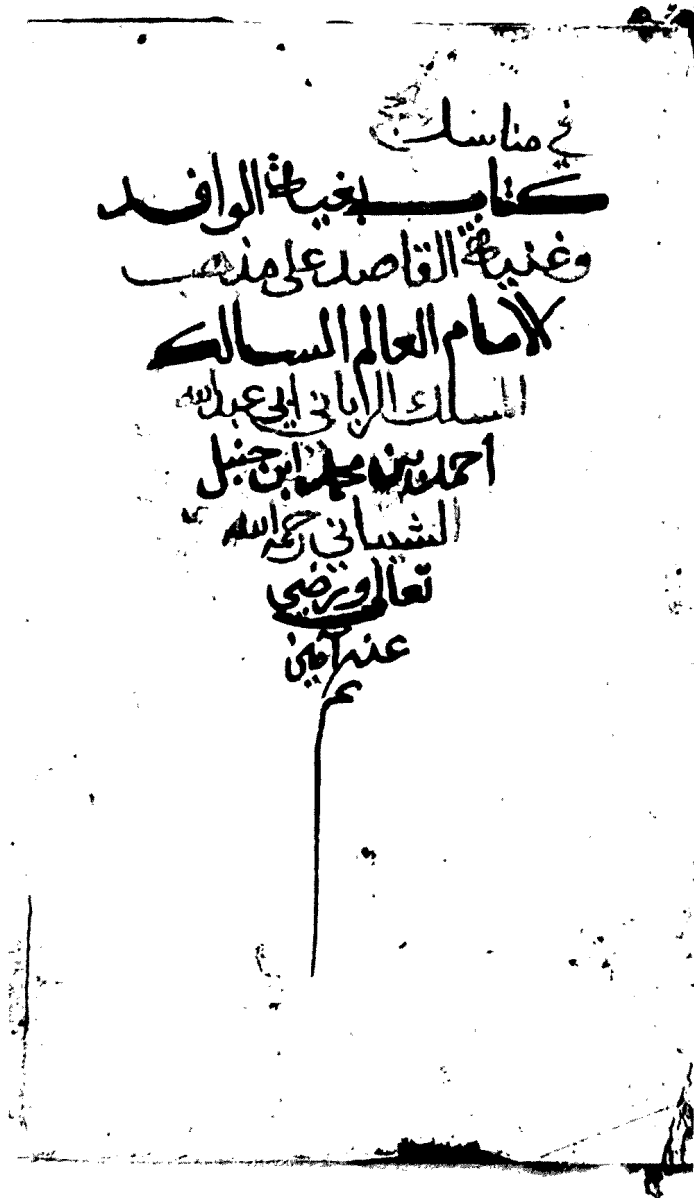 في مناسك
كتاب بغية الوافد
وغنية القاصد على مذهب
الامام العالم السالك
المسلك الرباني ابي عبد الله
احمد بن محمد ابن حنبل
الشيباني رحمه الله
تعالى ورضي
عنه آمين